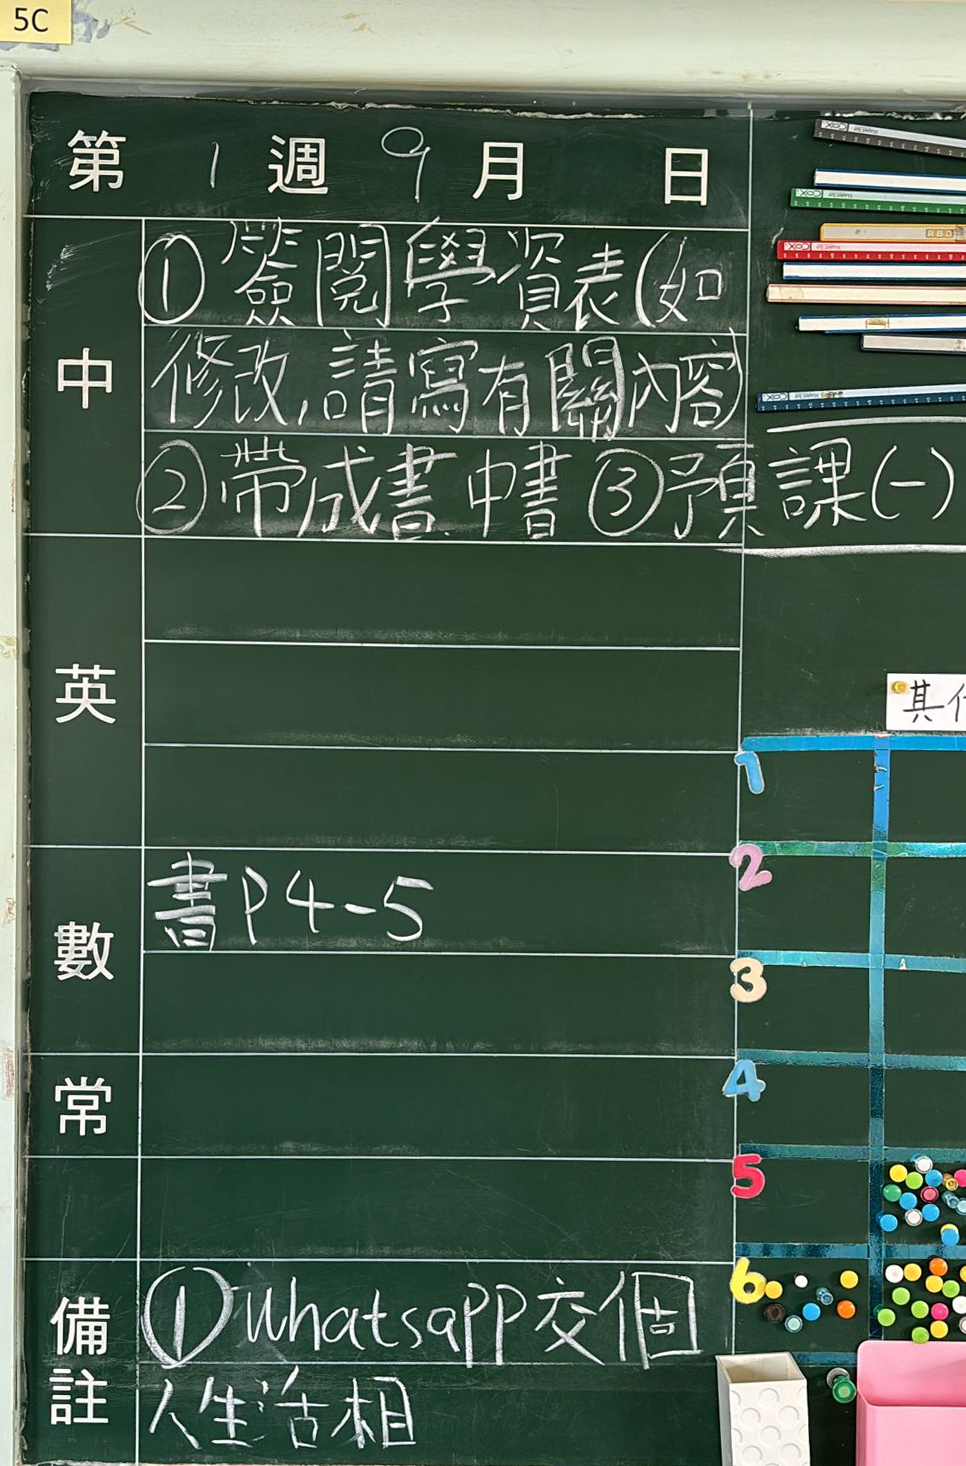 5C
第 1 週 9 月 日
中
①簽閱學資表(如
修改,請寫有關內容)
②帶成書.中書 ③預課(一)
英
其
1
數
書P4-5
2
3
常
4
5
備註
①Whatsapp交個
人生活相
6
COX
COX
RBD
COX
COX